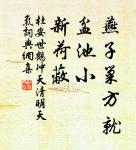 燕子巢方就
盆池小
新荷蔽
杜安世鶴冲天清明天
氣詞典網集